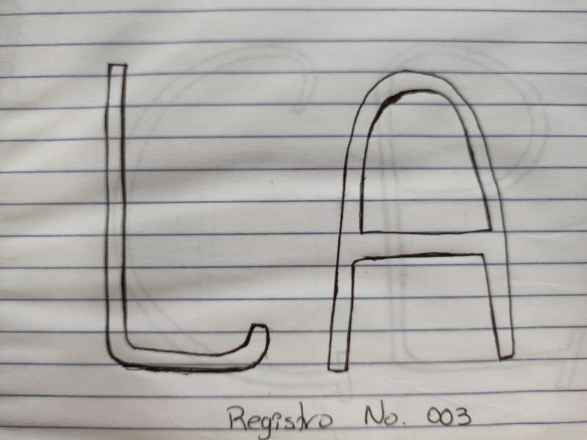 LA
Registro No. 003